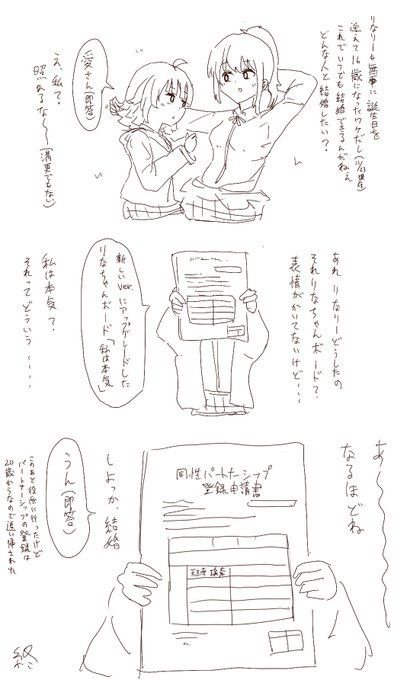 りなりーも無事に誕生日を
迎えて16歳になったワケだし(11/13現在)
これでいつでも結婚できるんだねぇ
どんな人と結婚したい?
愛さん(即答)
え、私?
照れるな〜〜(満更でもない)
あれ りなりーどうしたの
それりなちゃんボード?
表情がかいてないけど…
新しいver.にアップグレードした
りなちゃんボード「私は本気」
私は本気?
それってどういう・・・・
あ〜〜〜
なるほどね
同性パートナーシップ
登録申請書
天王寺 璃奈
しよっか、結婚
うん(即答)
このあと役所に行ったけど
パートナーシップの登録は
20歳からなので追い帰された
終